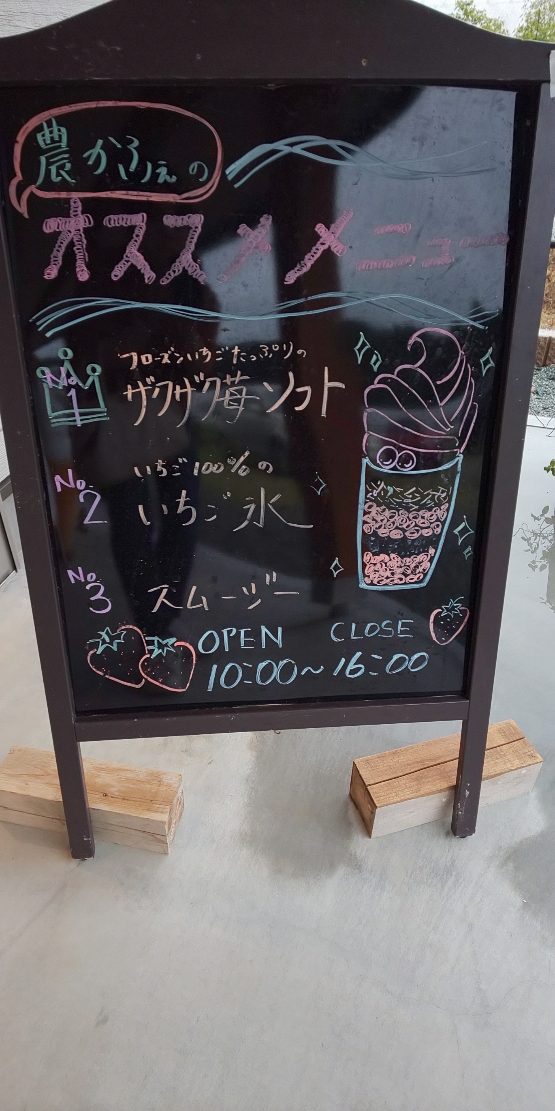 農かふぇの
オススメメニュー
No.1
フローズンいちごたっぷりの
ザクザク苺ソフト
No.2
いちご100%の
いちご氷
No.3
スムージー
OPEN CLOSE
10:00~16:00